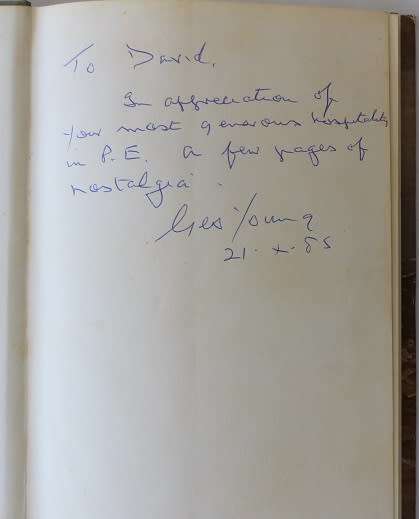 To David,
In appreciation of
your most generous hospitality
in P.E. a few pages of
nostalgia.
Young
21. x. 85